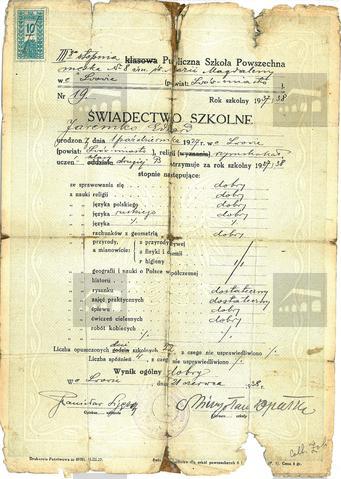 10
IIIgo stopnia klasowa Publiczna Szkoła Powszechna
męska Nr 8 im. św. Marii Magdaleny
we Lwowie (powiat: Lwów-miasto ).
Nr 19. Rok szkolny 1937/38
ŚWIADECTWO SZKOLNE
Jaremko
urodzon y dnia 1 października 1927 we Lwowie
(powiat: Lwów miasto ), religii (wyznania) rzymskokat.
uczeń oddziału drugiej B otrzymuje za rok szkolny 1937/38
stopnie następujące:
ze sprawowania się dobry
z nauki religii dobry
" języka polskiego dobry
" języka ruskiego dobry
" języka
rachunków z geometrią dobry
przyrody, z przyrody żywej
a mianowicie: z fizyki i chemii
z higieny
geografii i nauki o Polsce współczesnej
historii
rysunku dostateczny
zajęć praktycznych dostateczny
śpiewu dobry
ćwiczeń cielesnych dobry
robót kobiecych
Liczba opuszczonych dni godzin szkolnych z czego nie usprawiedliwiono
Liczba spóźnień z czego nie usprawiedliwiono
Wynik ogólny dobry
we Lwowie dnia 21 czerwca 1938.
Stanisław Mirosław